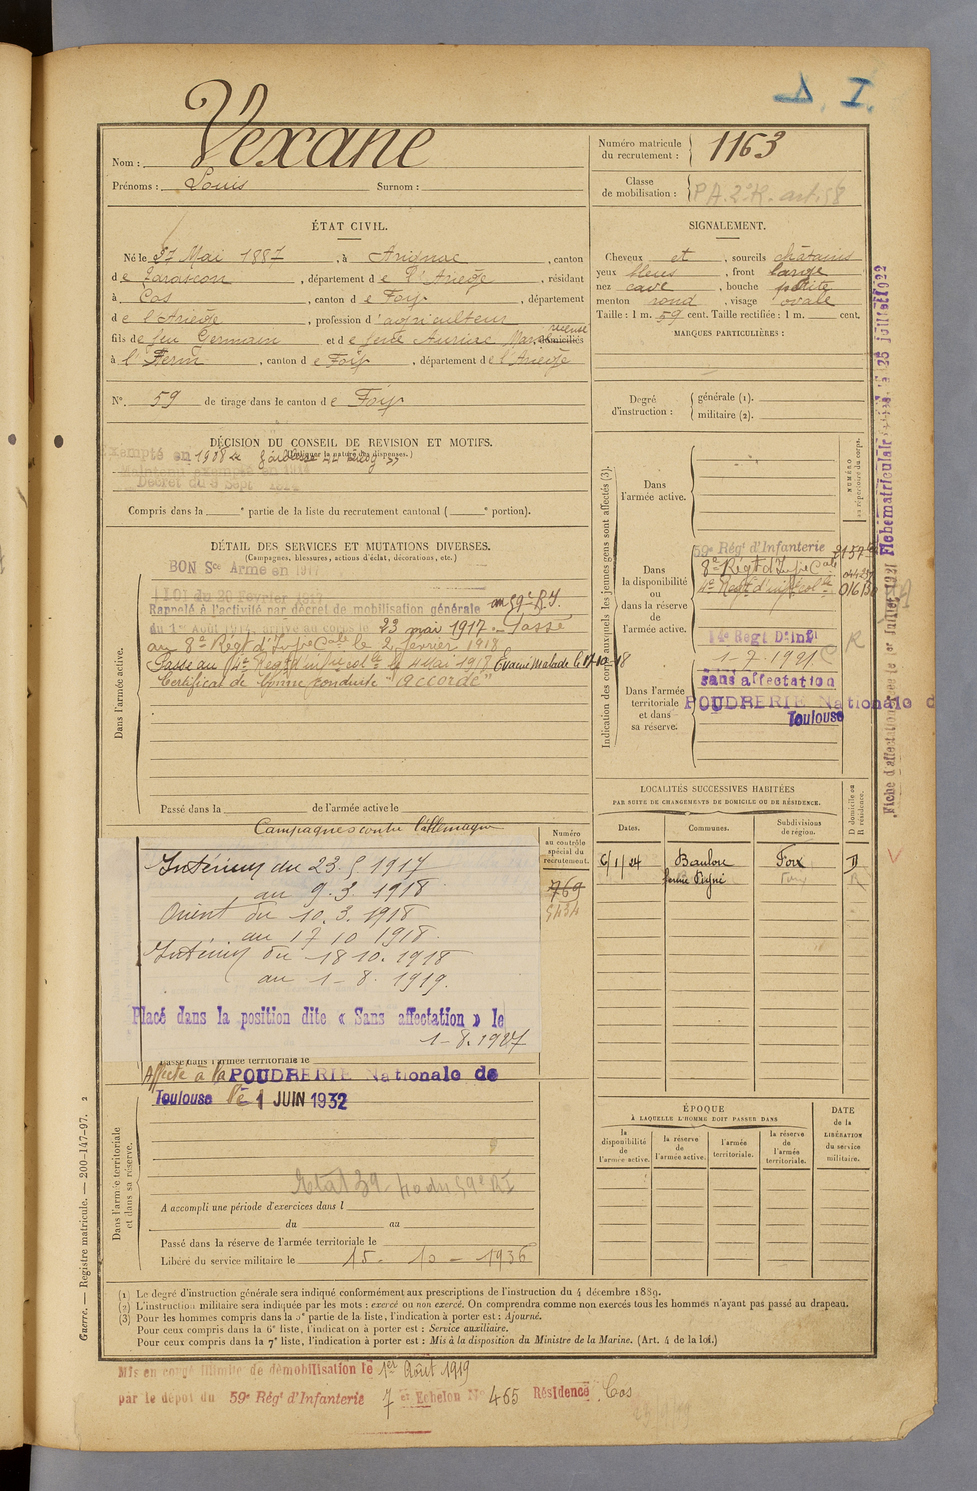 Δ. I.
Nom : Vexane
Prénoms : Louis Surnom :
Numéro matricule
du recrutement : 1163
Classe
de mobilisation :
ÉTAT CIVIL.
Né le 27 Mai 1887, à Arignac, canton
de Tarascon, département de l'Ariège, résidant
à Cos, canton de Foix, département
de l'Ariège, profession d'agriculteur
fils de feu Germain et de
à l'Herm, canton de Foix, département de l'Ariège
N°. 59 de tirage dans le canton de Foix
SIGNALEMENT.
Cheveux et, sourcils châtains
yeux bleus, front large
nez cave, bouche petite
menton rond, visage ovale
Taille : 1 m. 59 cent. Taille rectifiée : 1 m. cent.
MARQUES PARTICULIÈRES :
Degré
d'instruction :
générale (1).
militaire (2).
DÉCISION DU CONSEIL DE REVISION ET MOTIFS.
Exempté en 1908
Maintenu exempté en
Décret du 9 Sept
Compris dans la e partie de la liste du recrutement cantonal ( e portion).
DÉTAIL DES SERVICES ET MUTATIONS DIVERSES.
(Campagnes, blessures, actions d'éclat, décorations, etc.)
BON Sce Armé en 1917
LOI du 20 Février 1917
Rappelé à l'activité par décret de mobilisation générale au 59e R.I.
du 1er Août 1914. Arrivé au corps le 23 mai 1917. Passé
au 8e Régt d'Infie Cale le 2 février 1918
Passe au 4e Regt d'infie colle le 4 Mai 1918 Evacué Malade le 17-10-18
Certificat de bonne conduite "accordé"
Dans l'armée active.
Passé dans la de l'armée active le
Indication des corps auxquels les jeunes gens sont affectés (3).
NUMÉRO
au répertoire du corps.
Dans
l'armée active.
Dans
la disponibilité
ou
dans la réserve
de
l'armée active.
59e Régt d'Infanterie
8e Régt d'Infie Cale
4e Regt d'infie colle
14e Regt D'Infi
1-7.1921
Dans l'armée
territoriale
et dans
sa réserve.
sans affectation
POUDRERIE Nationale d
Toulouse
Campagnes contre l'allemagne
Numéro
au contrôle
spécial du
recrutement.
769
5434
Intérieur du 23.5 1917
au 9.3. 1918
Orient du 10.3.1918
au 17 10 1918.
Intérieur du 18 10. 1918
au 1-8. 1919.
Placé dans la position dite « Sans affectation » le
1-8.1927
Passé dans l'armée territoriale le
Affecté à la POUDRERIE Nationale de
Toulouse le 1 JUIN 1932
Dans l'armée territoriale
et dans sa réserve.
A accompli une période d'exercices dans l
du au
Passé dans la réserve de l'armée territoriale le
Libéré du service militaire le 15-10-1936
LOCALITÉS SUCCESSIVES HABITÉES
PAR SUITE DE CHANGEMENTS DE DOMICILE OU DE RÉSIDENCE.
Dates. Communes. Subdivisions
de région.
D domicile ou
R résidence.
6/1/24 Baulou Foix D
Foix R
ÉPOQUE
À LAQUELLE L'HOMME DOIT PASSER DANS
la
disponibilité
de
l'armée active.
la réserve
de
l'armée active.
l'armée
territoriale.
la réserve
de
l'armée
territoriale.
DATE
de la
LIBÉRATION
du service
militaire.
(1) Le degré d'instruction générale sera indiqué conformément aux prescriptions de l'instruction du 4 décembre 1889.
(2) L'instruction militaire sera indiquée par les mots : exercé ou non exercé. On comprendra comme non exercés tous les hommes n'ayant pas passé au drapeau.
(3) Pour les hommes compris dans la 5e partie de la liste, l'indication à porter est : Ajourné.
Pour ceux compris dans la 6e liste, l'indication à porter est : Service auxiliaire.
Pour ceux compris dans la 7e liste, l'indication à porter est : Mis à la disposition du Ministre de la Marine. (Art. 4 de la loi.)
Mis en congé illimité de démobilisation le 1er Août 1919
par le dépôt du 59e Régt d'Infanterie 7e Echelon N° 465 Résidence Cos
Guerre. — Registre matricule. — 200-147-97. 2